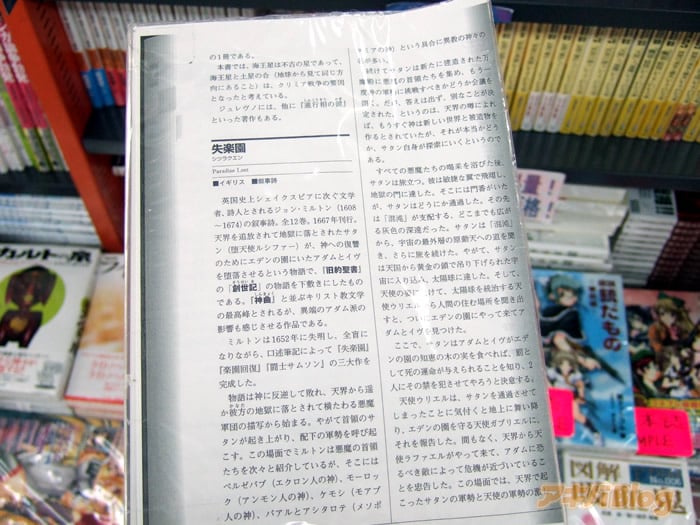 の1冊である。
本書では、海王星は不吉の星であって、
海王星と土星の合（地球から見て同じ方
向にあること）は、クリミア戦争の要因
となったと考えている。
ジュレヴノには、他に『流行相の謎』
といった著作もある。
失楽園
シツラクエン
Paradise Lost
■イギリス ■叙事詩
英国史上シェイクスピアに次ぐ文学
者、詩人とされるジョン・ミルトン（1608
～1674）の叙事詩。全12巻、1667年刊行。
天界を追放されて地獄に落とされたサ
タン（堕天使ルシファー）が、神への復讐
のためにエデンの園にいたアダムとイヴ
を堕落させるという物語で、『旧約聖書』
の『創世記』の物語を下敷きにしたもの
である。『神曲』と並ぶキリスト教文学
の最高峰とされるが、異端のアダム派の
影響も感じさせる作品である。
ミルトンは1652年に失明し、全盲に
なりながら、口述筆記によって『失楽園』
『楽園回復』『闘士サムソン』の三大作を
完成した。
物語は神に反逆して敗れ、天界から遥
か彼方の地獄に落とされて横たわる悪魔
軍団の描写から始まる。やがて首領のサ
タンが起き上がり、配下の軍勢を呼び起
こす。この場面でミルトンは悪魔の首領
たちを次々と紹介しているが、そこには
ベルゼバブ（エクロン人の神）、モーロッ
ク（アンモン人の神）、ケモシ（モアブ
人の神）、バアルとアシタロテ（メソポ
ミアの神）という具合に異教の神々の
名が多い。
続けてサタンは新たに建造された万
魔殿に悪魔の首領たちを集め、もう一
度神の軍に挑戦すべきかどうか会議を
開く。だが、答えは出ず、別なことが決
定された。というのは、天界の噂によれ
ば、もうすぐ神は新しい世界と被造物を
作るとされていたが、それが本当かどう
か、サタン自身が探索にいくというので
ある。
すべての悪魔たちの喝采を浴びた後、
サタンは旅立つ。彼は敏捷な翼で飛翔し、
地獄の門に達した。そこには門番がいた
が、サタンはどうにか通過した。その先
は「混沌」が支配する、どこまでも広が
る灰色の深淵だった。サタンは「混沌」
から、宇宙の最外層の原動天への道を聞
き、さらに旅を続けた。やがて、サタン
は天国から黄金の鎖で吊り下げられた宇
宙に入り込み、太陽球に達した。そして、
天使の姿に化けて、太陽球を統治する天
使ウリエルから人間の住む場所を聞き出
すと、ついにエデンの園にやって来てア
ダムとイヴを見つけた。
ここで、サタンはアダムとイヴがエデ
ンの園の知恵の木の実を食べれば、罰と
して死の運命が与えられることを知り、2
人にその禁を犯させてやろうと決意する。
天使ウリエルは、サタンを通過させて
しまったことに気付くと地上に舞い降
り、エデンの園を守る天使ガブリエルに、
それを報告した。間もなく、天界から天
使ラファエルがやって来て、アダムに恐
るべき敵によって危機が近づいているこ
とを忠告した。この場面では、天界で起
こったサタンの軍勢と天使の軍勢の激
図解
No.006
アキバBlog